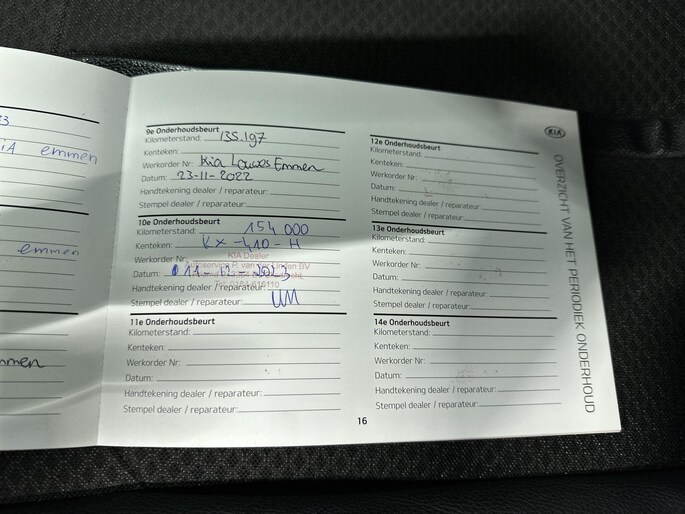 33
iA emmen
emmen
mmen
9e Onderhoudsbeurt
Kilometerstand: 135.197
Kenteken:
Werkorder Nr: Kia Louwes Emmen
Datum: 23-11-2022
Handtekening dealer / reparateur:
Stempel dealer / reparateur:
10e Onderhoudsbeurt
Kilometerstand: 154 000
Kenteken: KX-410-H
KIA Dealer
Werkorder Nr:
Datum: 11-12-2023
Handtekening dealer / reparateur:
Stempel dealer / reparateur:
11e Onderhoudsbeurt
Kilometerstand:
Kenteken:
Werkorder Nr:
Datum:
Handtekening dealer / reparateur:
Stempel dealer / reparateur:
12e Onderhoudsbeurt
Kilometerstand:
Kenteken:
Werkorder Nr:
Datum:
Handtekening dealer / reparateur:
Stempel dealer / reparateur:
13e Onderhoudsbeurt
Kilometerstand:
Kenteken:
Werkorder Nr:
Datum:
Handtekening dealer / reparateur:
Stempel dealer / reparateur:
14e Onderhoudsbeurt
Kilometerstand:
Kenteken:
Werkorder Nr:
Datum:
Handtekening dealer / reparateur:
Stempel dealer / reparateur:
KIA
OVERZICHT VAN HET PERIODIEK ONDERHOUD
16